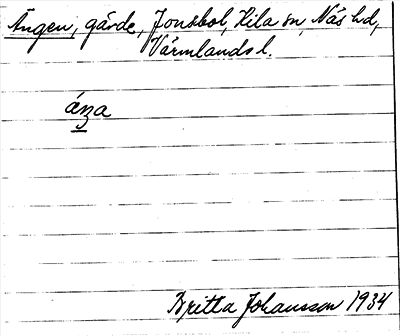 Ängen, gärde, Jonsbol, Kila sn, Näs hd,
Värmlands l.
áŋa
Britta Johansson 1934